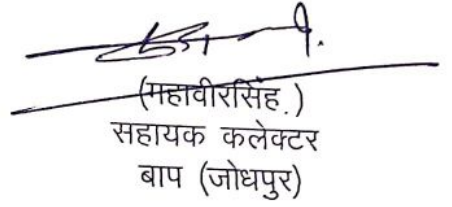 (महावीरसिंह.)
सहायक कलेक्टर
बाप (जोधपुर)